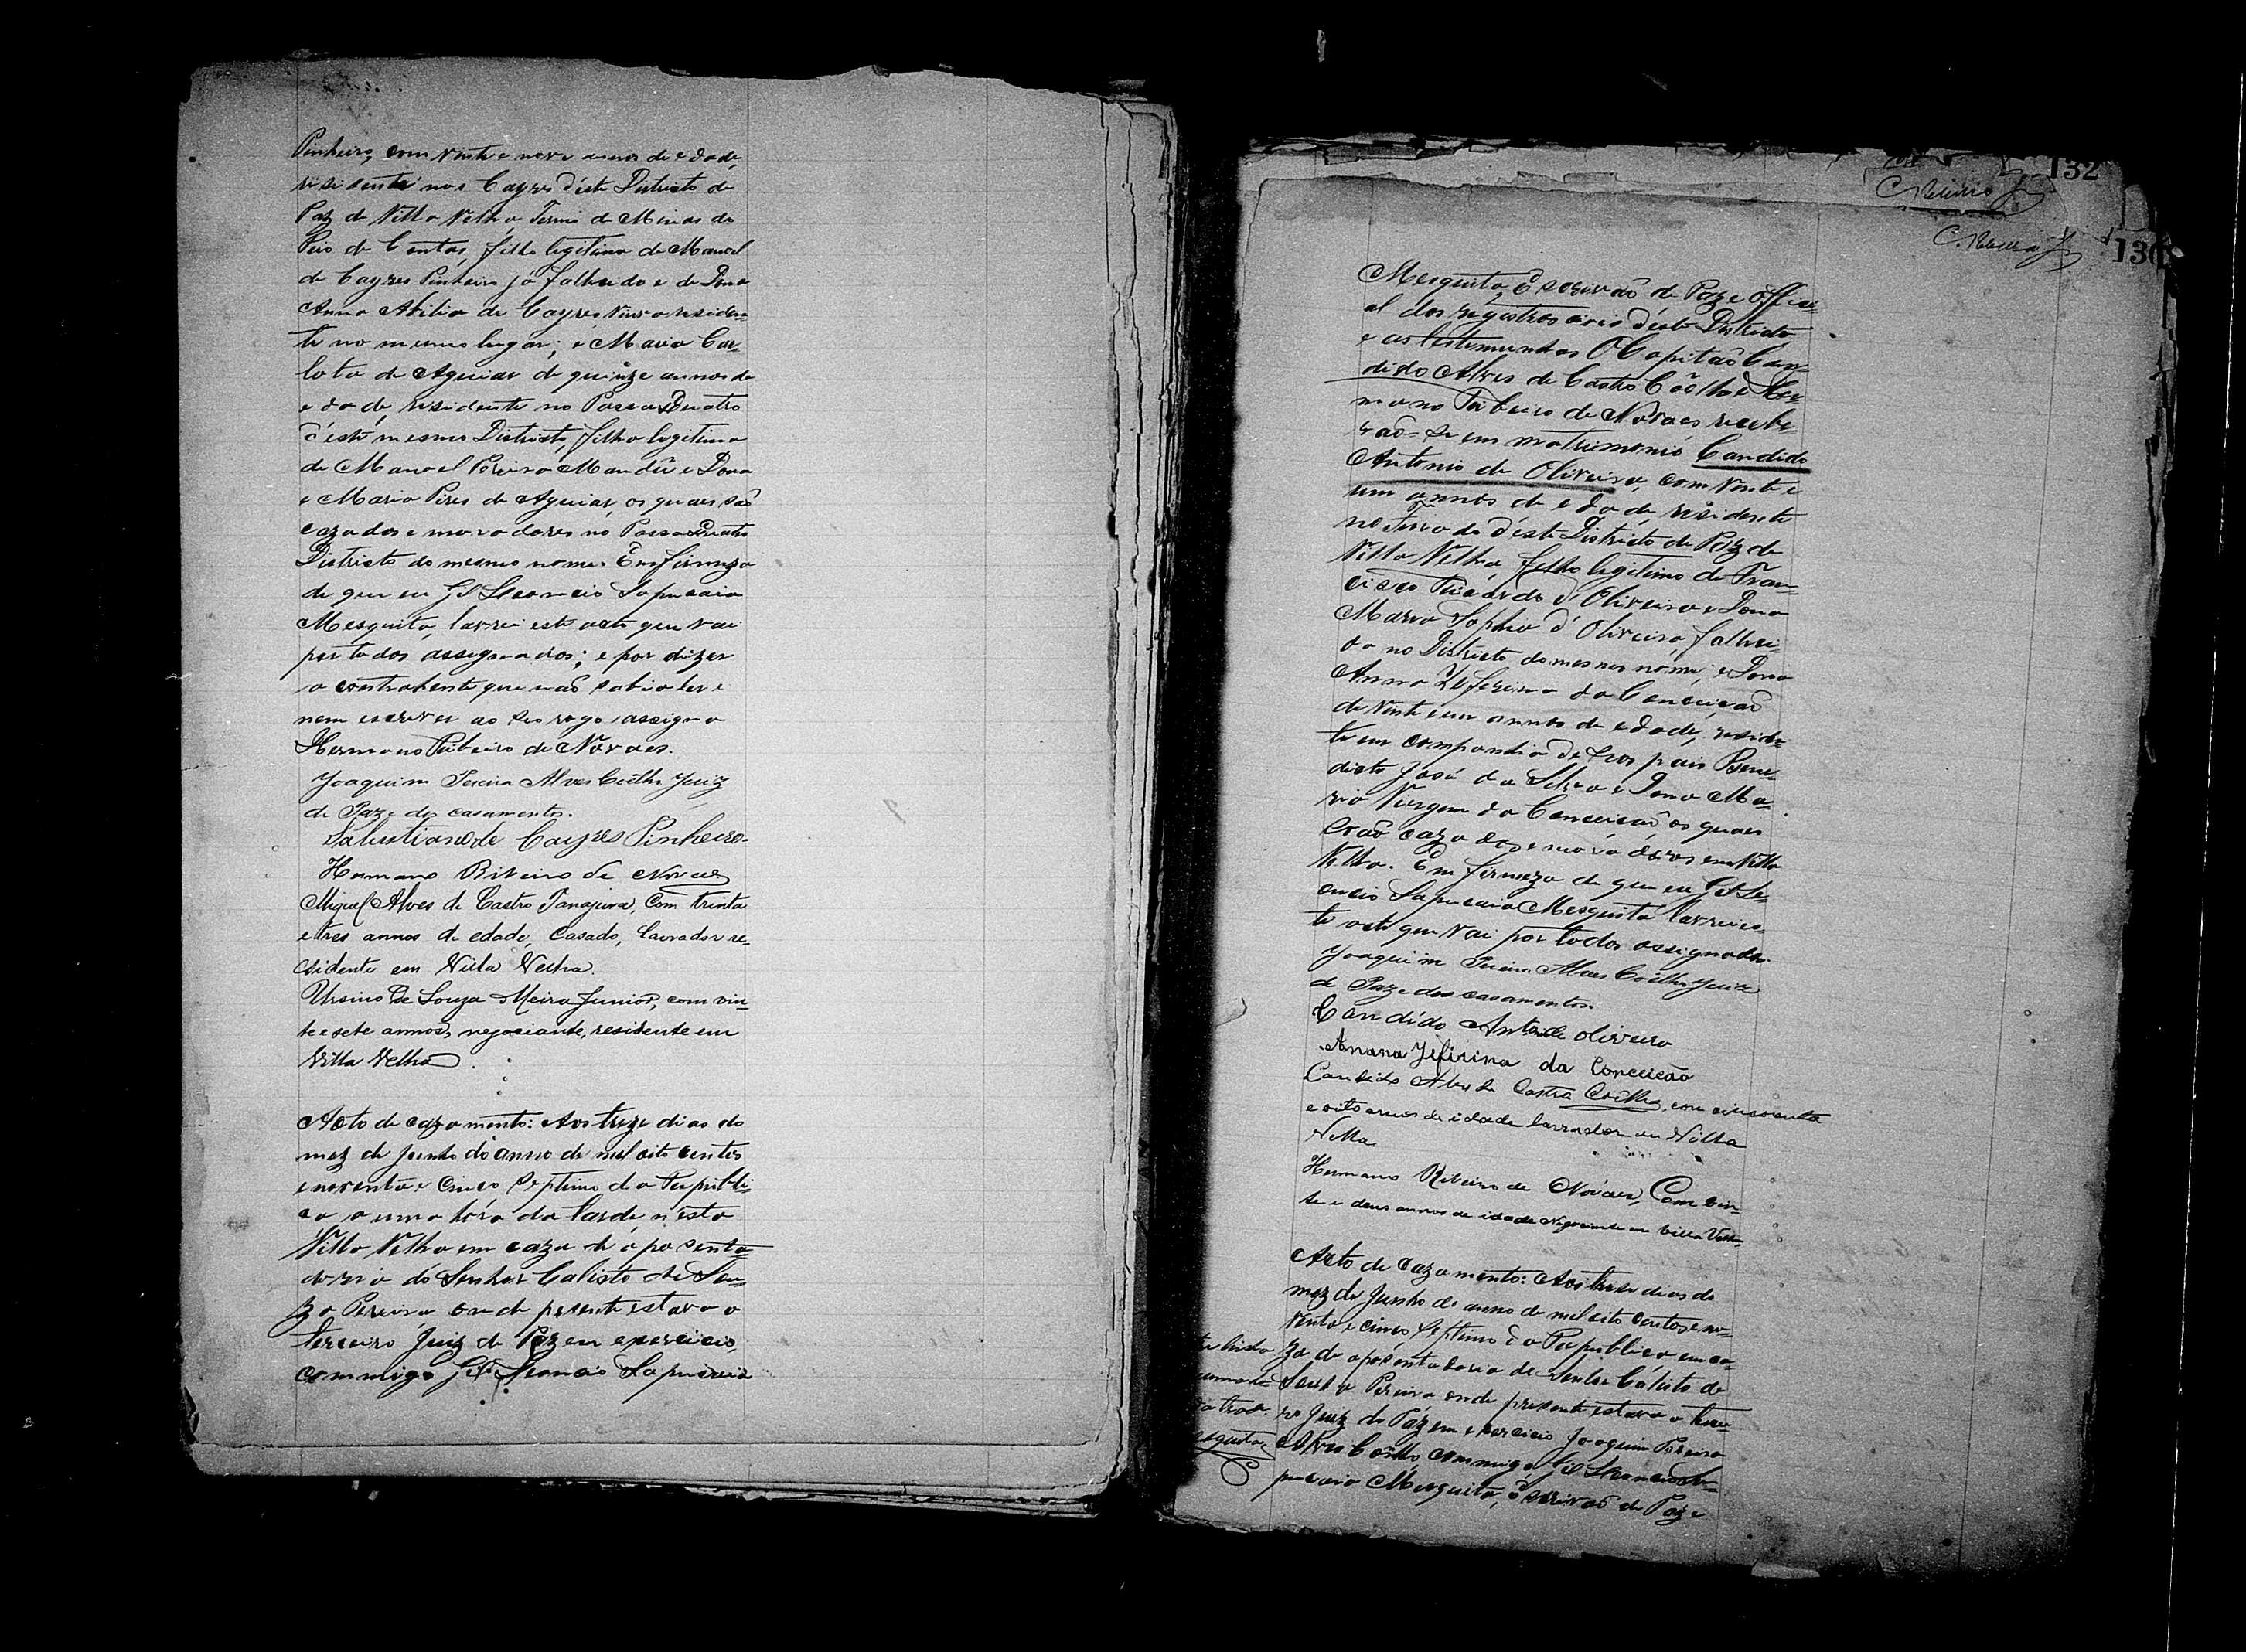 Pinheiro, com vinte e nove annos de edade,
residente nos Cayres d'este Districto de
Paz de Villa Velha, Termo de Minas do
Rio de Contas, filho legitimo de Manoel
de Cayres Pinheiro já fallecido e de Dona
Anna Atilia de Cayres viuva residen-
te no mesmo lugar; e Maria Car-
lota de Aguiar de quinze annos de
edade, residente no Passa Quatro
d'este mesmo Districto, filha legitima
de Manoel Pereira e Dona
Maria Pires de Aguiar, os quaes são
cazados e moradores no Passa Quatro
Districto do mesmo nome. Em firmeza
de que eu Gil Leoncio Sapucaia
Mesquita, lavrei este acto que vai
por todos assignados; e por dizer
a contrahente que não sabia ler e
nem escrever ao seo rogo assigna
Hermano Ribeiro de Novaes.
Joaquim Pereira Alves Coêlho Juiz
de Paz e dos casamentos.
Salustiano de Cayres Pinheiro
Hermano Ribeiro de Novaes
Miguel Alves de Castro Tanajura, Com trinta
e tres annos de edade, Casado, lavrador re-
sidente em Villa Velha.
Ursino de Souza Meira Junior, com vin-
te e sete annos, negociante, residente em
Villa Velha.
Acto de cazamento: Aos treze dias do
mez de Junho do anno de mil oito centos
e noventa e cinco septimo da Republi-
ca a uma hora da tarde n'esta
Villa Velha em caza de aposenta-
doria do Senhor Calisto de Sou-
za Pereira, onde presente estava o
terceiro Juiz de Paz em exercicio,
commigo Gil Leoncio Sapucaia
132
C. Ribeiro Jr
C. Ribeiro Jr
130
Mesquita, Escrivão de Paz e offici-
al dos registros civis d'este Districto
e as testemunhas O Capitão Can-
dido Alves de Castro Coêlho e Her-
mano Ribeiro de Novaes recebe-
rão-se em matrimonio Candido
Antonio de Oliveira, com vinte e
um annos de edade, residente
no d'este Districto de Paz de
Villa Velha, filho legitimo de Fran-
cisco Ricardo d'Oliveira e Dona
Maria Sophia d'Oliveira, falleci-
da no Districto do mesmo nome; e Dona
Anna Zeferina da Conceição
de vinte e um annos de edade, residen-
te em companhia de seos pais Bene-
dicto José da Silva e Dona Ma-
ria Virgem da Conceição os quaes
são cazados e moradores em Villa
Velha. Em firmeza de que eu Gil Le-
oncio Sapucaia Mesquita lavrei es-
te acto que vai por todos assignado.
Joaquim Pereira Alves Coêlho Juiz
de Paz e dos casamentos.
Candido Antonio de oliveira
Anana Zifirina da Conceicão
Candido Alves de Castro Coêlho, com cincoenta
e oito annos de idade lavrador em Villa
Velha.
Hermano Ribeiro de Novaes, Com vin-
te e dous annos de idade Negociante em Villa Velha.
Acto de cazamento: Aos treze dias do
mez de Junho do anno de mil oito centos e no-
venta e cinco septimo da Republica em ca-
za de aposentadoria do Senhor Calisto de
Souza Pereira onde presente estava o tercei-
ro Juiz de Paz em exercicio Joaquim Pereira
Alves Coêlho, commigo Gil Leoncio Sa-
pucaia Mesquita, Escrivão de Paz e